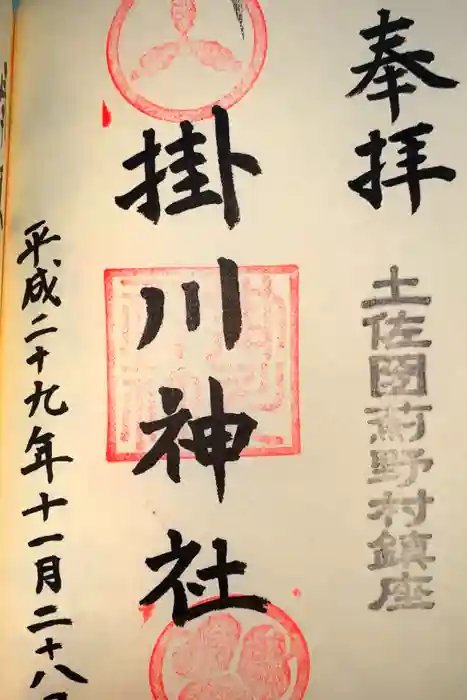 奉拝
土佐國薊野村鎮座
掛川神社
平成二十九年十一月二十八日